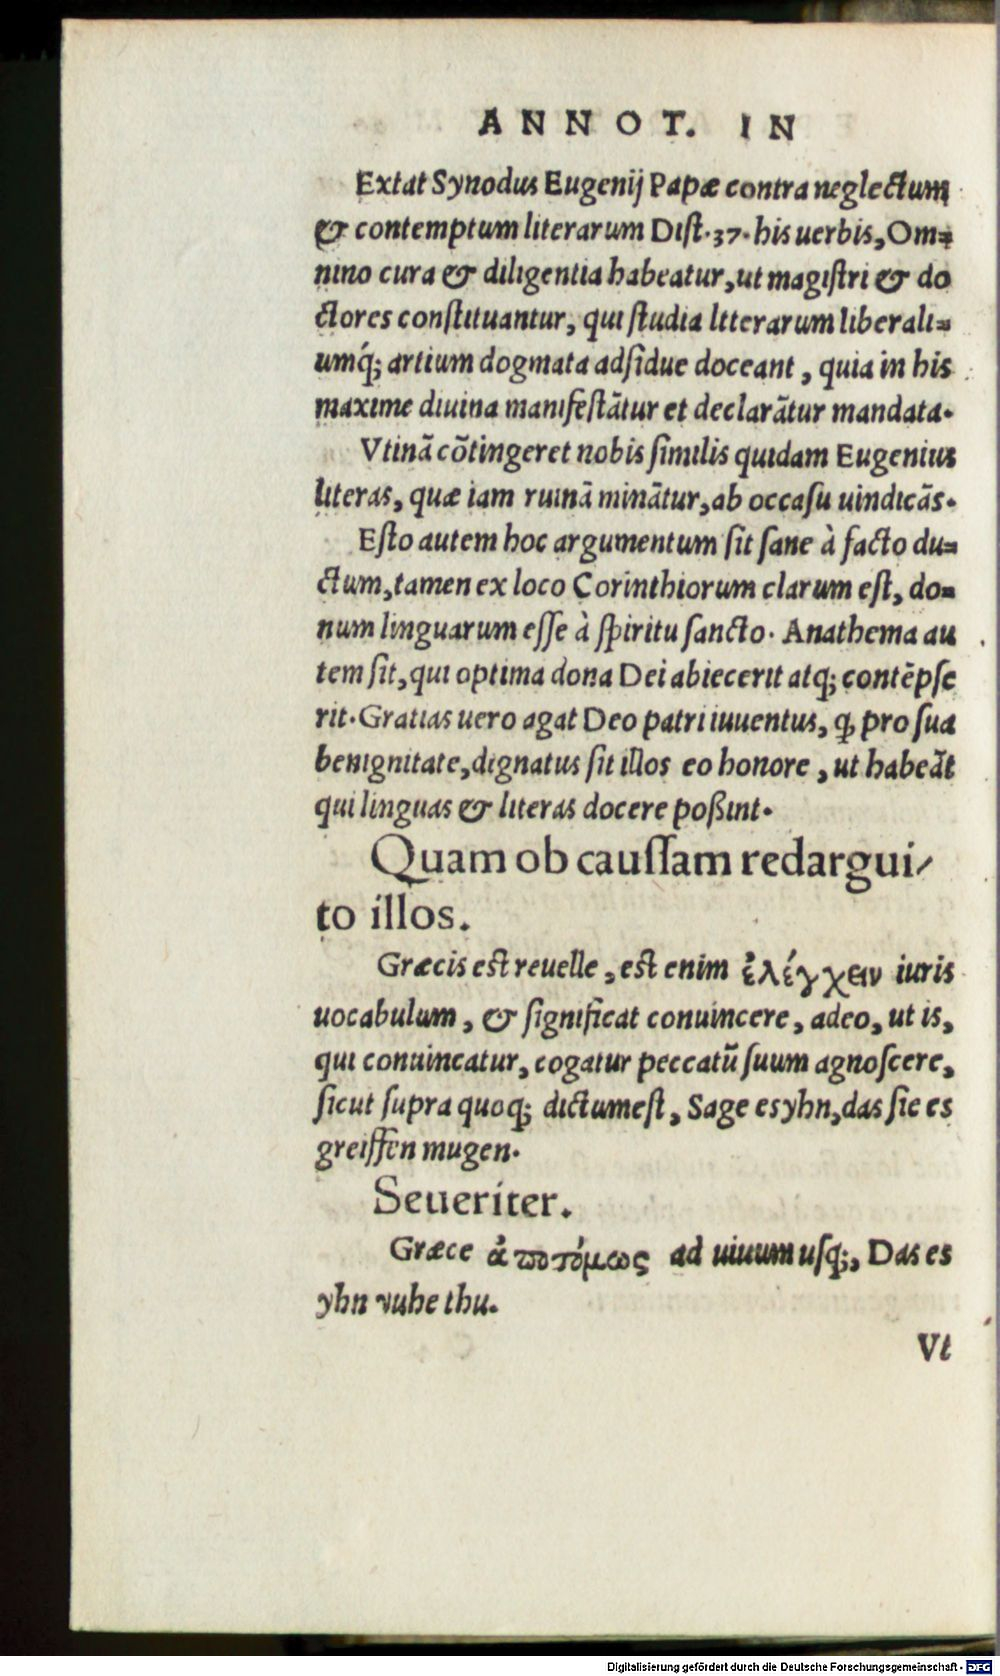 ANNOT. IN
Extat Synodus Eugenij Papæ contra neglectum
& contemptum literarum Dist. 37. his uerbis, Om=
nino cura & diligentia habeatur, ut magistri & do
ctores constituantur, qui studia literarum liberali=
umq́; artium dogmata adsidue doceant, quia in his
maxime diuina manifestãtur et declarãtur mandata.
Vtinã cõtingeret nobis similis quidam Eugenius
literas, quæ iam ruinã minãtur, ab occasu uindicãs.
Esto autem hoc argumentum sit sane à facto du=
ctum, tamen ex loco Corinthiorum clarum est, do=
num linguarum esse à spiritu sancto. Anathema au
tem sit, qui optima dona Dei abiecerit atq; contẽpse
rit. Gratias uero agat Deo patri iuuentus, ꝙ pro sua
benignitate, dignatus sit illos eo honore, ut habeãt
qui linguas & literas docere poßint.
Quam ob caussam redargui/
to illos.
Græcis est reuelle, est enim ἐλέγχειν iuris
uocabulum, & significat conuincere, adeo, ut is,
qui conuincatur, cogatur peccatũ suum agnoscere,
sicut supra quoq; dictumest, Sage es yhn, das sie es
greiffen mugen.
Seueriter.
Græce ἀποτόμως ad uiuum usq;, Das es
yhn vuhe thu.
Vt
Digitalisierung gefördert durch die Deutsche Forschungsgemeinschaft - DFG